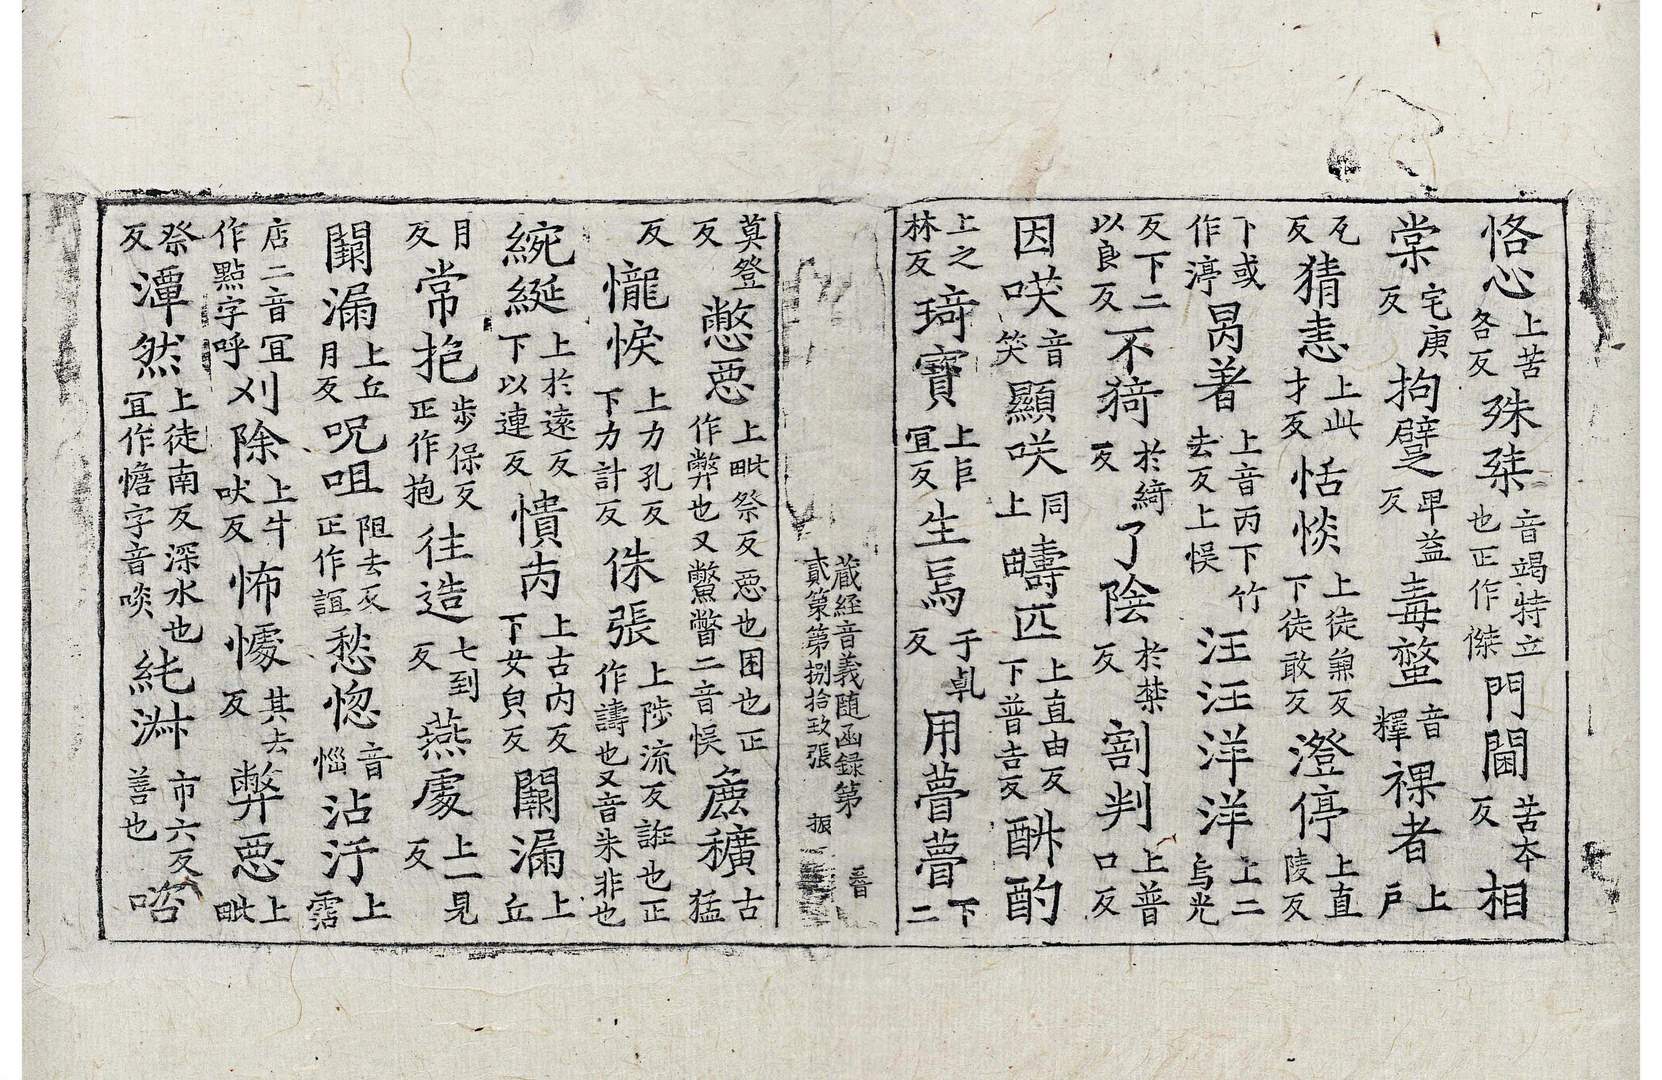 恪心上苦各反殊桀音竭特立也正作傑門閫苦本反相
棠宅庚反拘躄卑益反毒螫音釋裸者上戶
瓦反猜恚上此才反恬惔上徒兼反下徒敢反澄停上直陵反
下或作渟曷著上音丙下竹去反上悮汪汪洋洋上二烏光
反下二以良反不猗於綺反了陰於禁反割判上普口反
因咲音笑顯咲同上疇匹上直由反下普吉反酣酌
上之林反琦寶上巨宜反生焉于乹反用瞢瞢下二
藏經音義隨函録第貳第第捌拾玖張 振 音
莫登反憋惡上毗祭反惡也困也正作弊也又鷩瞥二音悮麁穬古猛
反 儱悷上力孔反下力計反侏張上陟流反誑也正作譸也又音朱非也
綩綖上於遠反下以連反憒丙上古內反下女皃反闕漏上丘
月反常抱步保反正作抱往造七到反燕處上一見反
闕漏上丘月反呪咀阻去反正作詛愁惚音惱沾汙上霑
店二音冝作點字呼刈除上牛吠反怖懅其去反弊惡上毗
祭反潭然上徒南反深水也冝作憺字音啖純淋市六反善也㗖